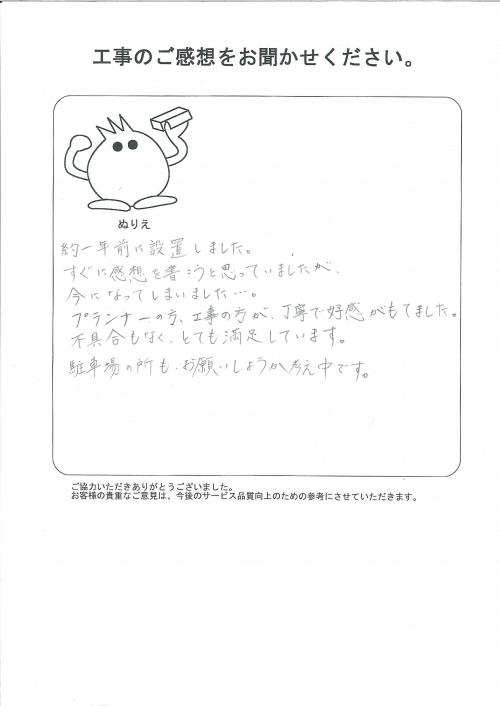 工事のご感想をお聞かせください。
ぬりえ
約一年前に設置しました。
すぐに感想を書こうと思っていましたが、
今になってしまいました…。
プランナーの方、工事の方が、丁寧で好感がもてました。
不具合もなく、とても満足しています。
駐車場の所も、お願いしようか考え中です。
ご協力いただきありがとうございました。
お客様の貴重なご意見は、今後のサービス品質向上のための参考にさせていただきます。